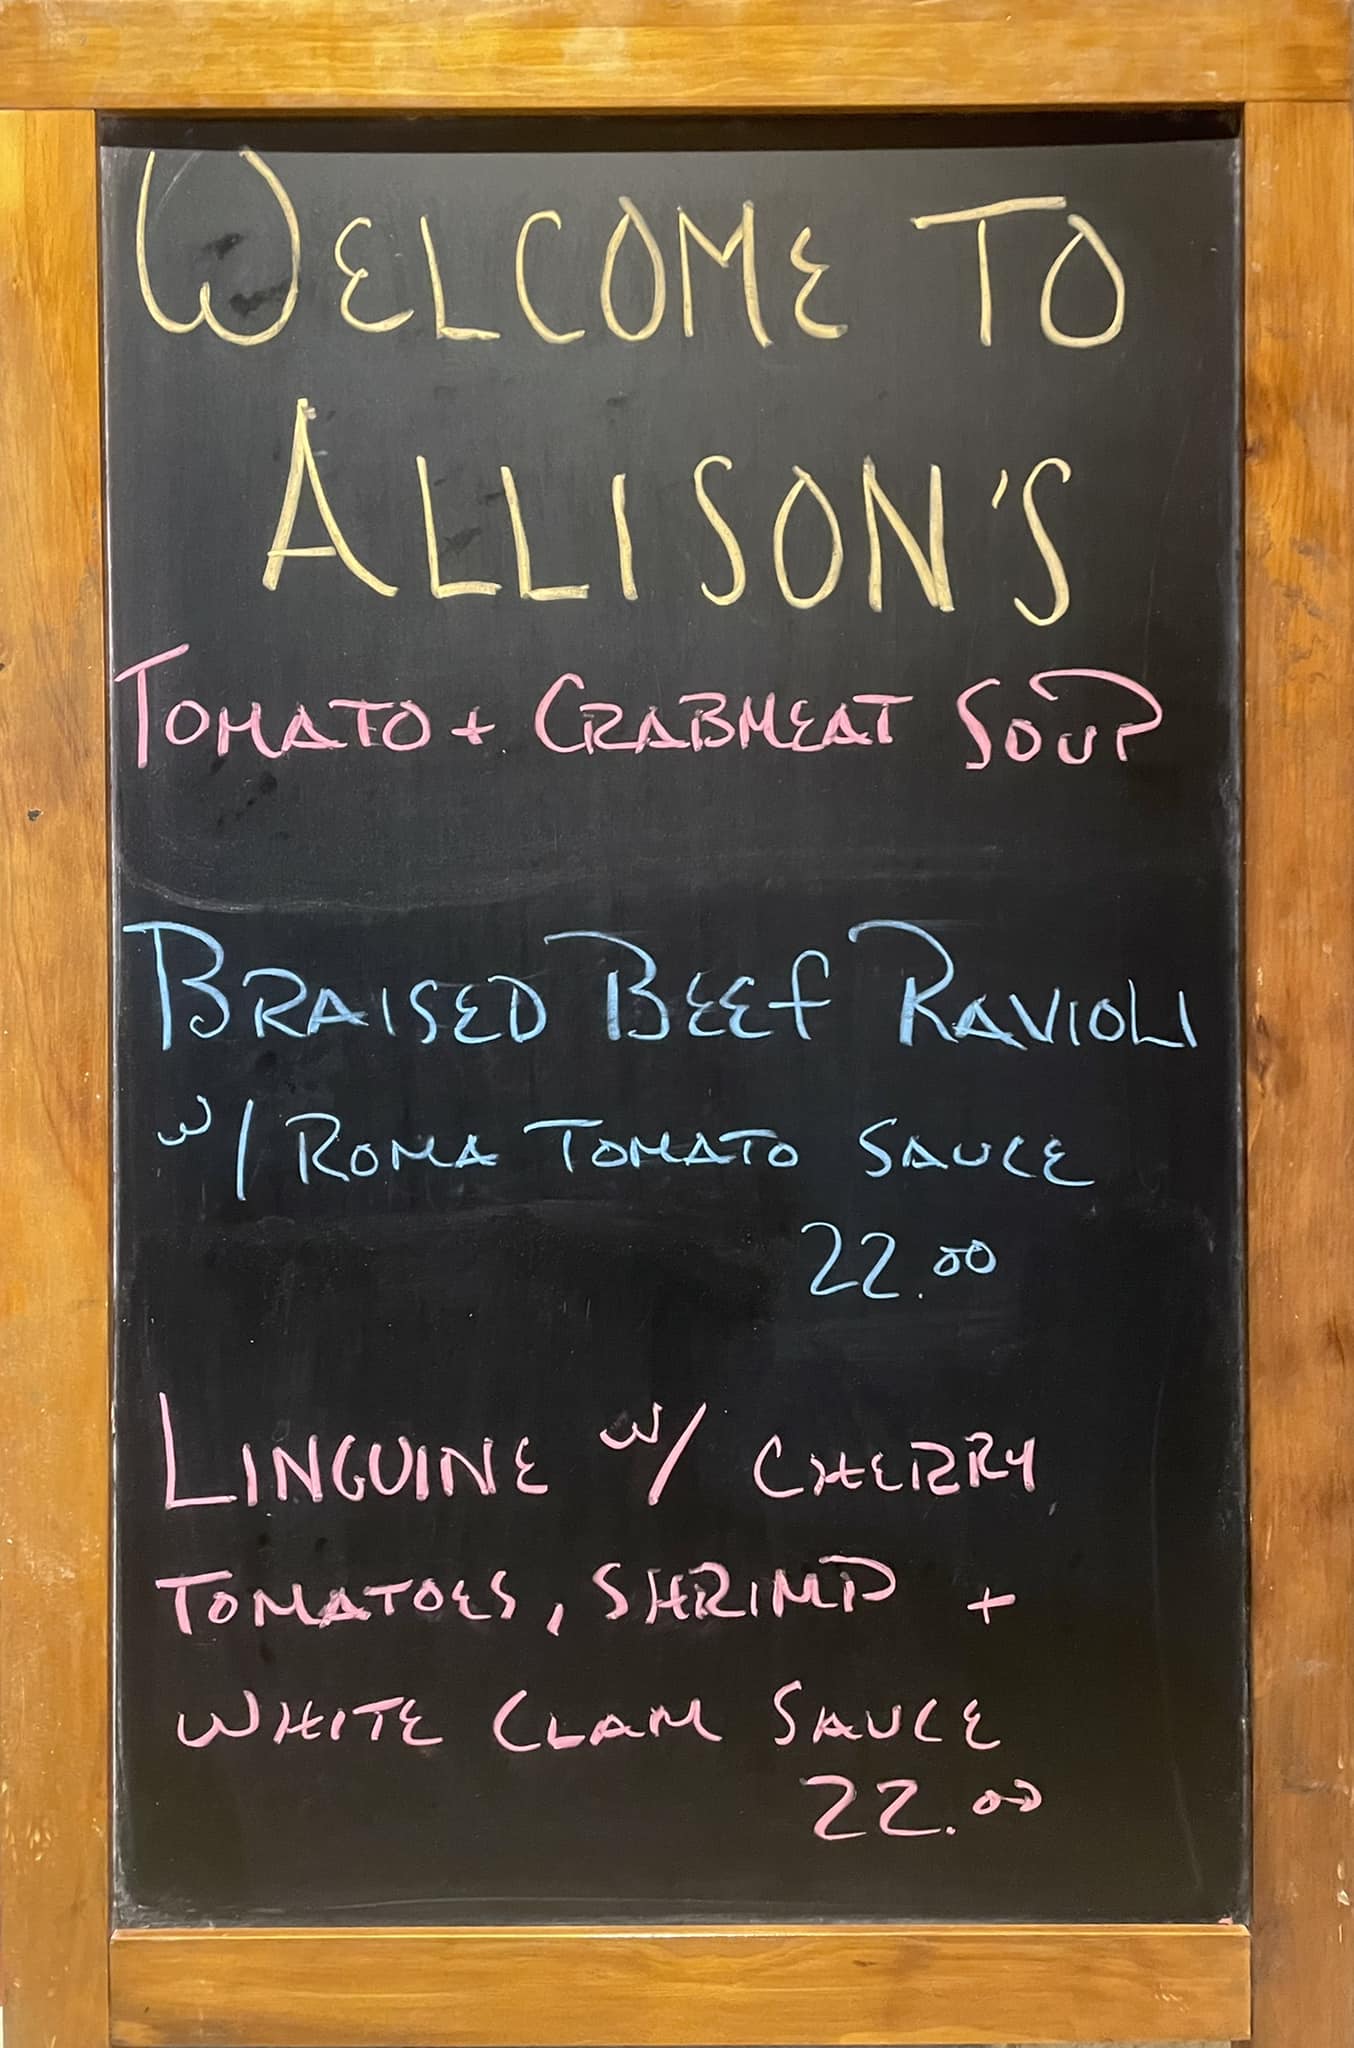 WELCOME TO
ALLISON'S
TOMATO + CRABMEAT SOUP
BRAISED BEEF RAVIOLI
W/ ROMA TOMATO SAUCE
22.00
LINGUINE W/ CHERRY
TOMATOES, SHRIMP +
WHITE CLAM SAUCE
22.00